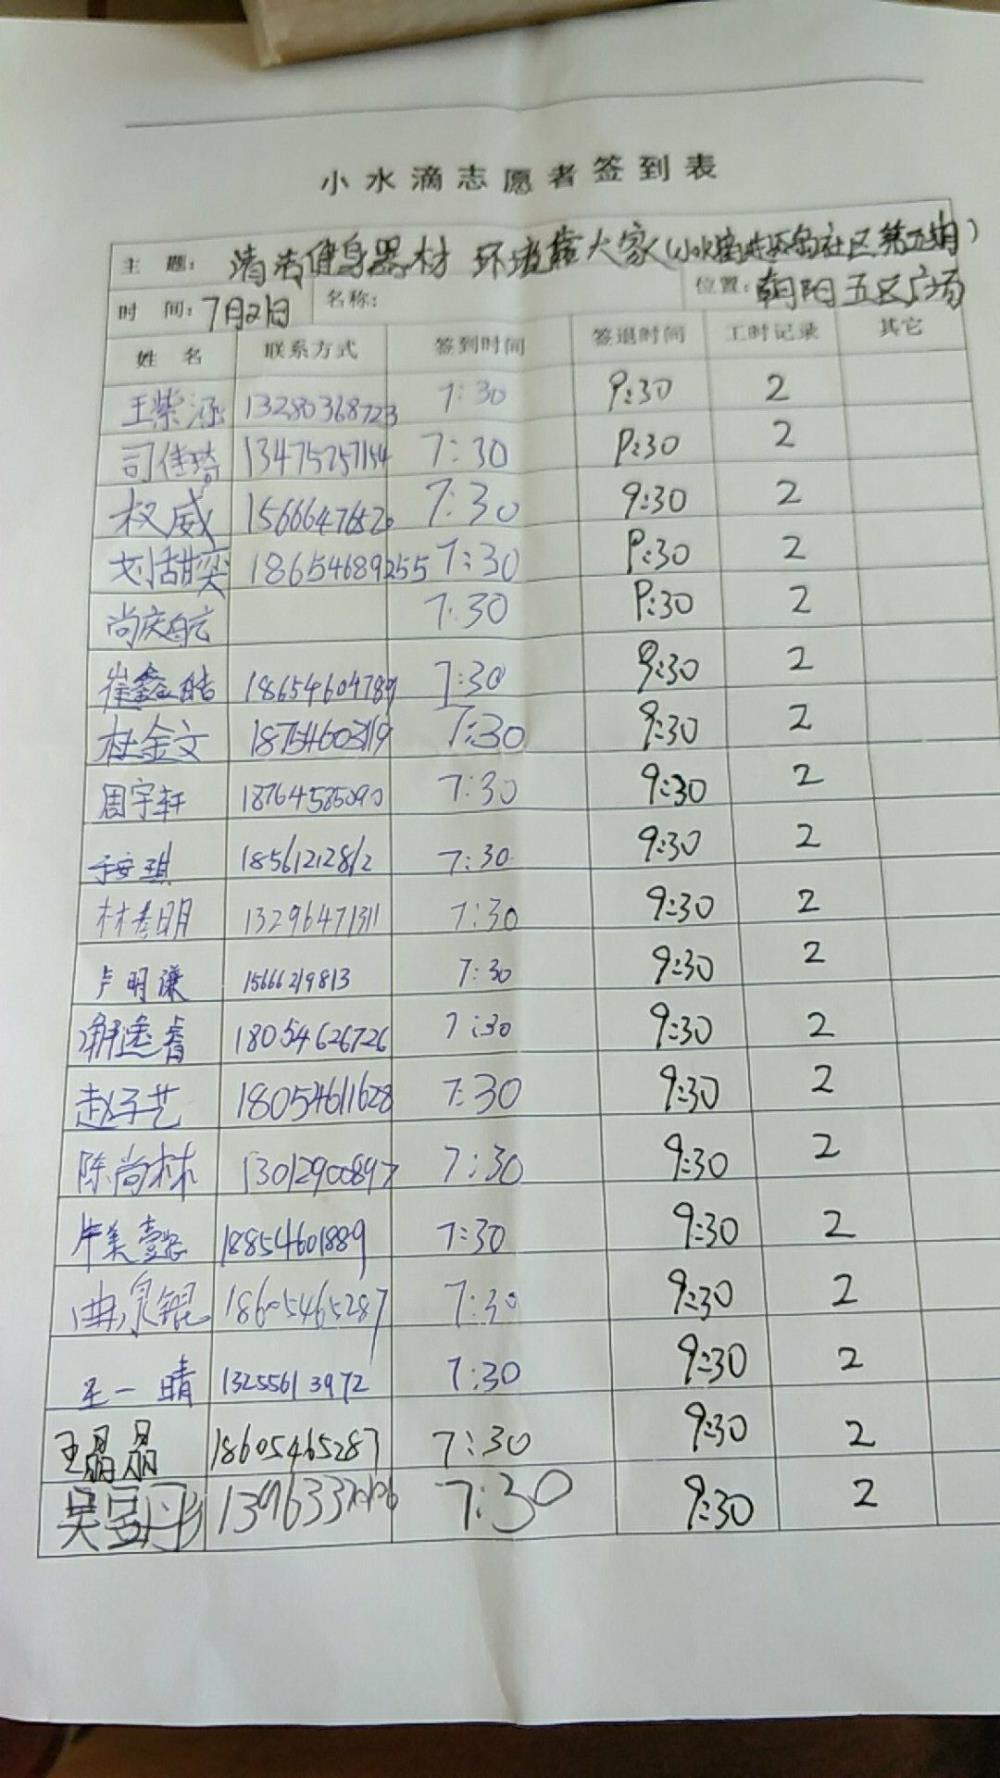 小水滴志愿者签到表
主 题: 清洁健身器材 环境靠大家(小水滴进社区第五期)
时 间: 7月21日 名称: 位置: 朝阳五区广场
姓 名 联系方式 签到时间 签退时间 工时记录 其它
王紫涵 13280368723 7:30 9:30 2
司佳琦 13475257154 7:30 9:30 2
权威 7:30 9:30 2
刘甜奕 18654689255 7:30 9:30 2
尚庆航 7:30 9:30 2
崔鑫皓 18654604789 7:30 9:30 2
杜金文 18754603119 7:30 9:30 2
周宇轩 18764585090 7:30 9:30 2
于安琪 18561212812 7:30 9:30 2
林春明 13296471311 7:30 9:30 2
卢明谦 15666219813 7:30 9:30 2
18054626726 7:30 9:30 2
赵子艺 18054611628 7:30 9:30 2
陈尚林 13012900897 7:30 9:30 2
18854601889 7:30 9:30 2
曲泉锟 18605465287 7:30 9:30 2
王一晴 13255613972 7:30 9:30 2
王晶晶 18605465287 7:30 9:30 2
7:30 9:30 2